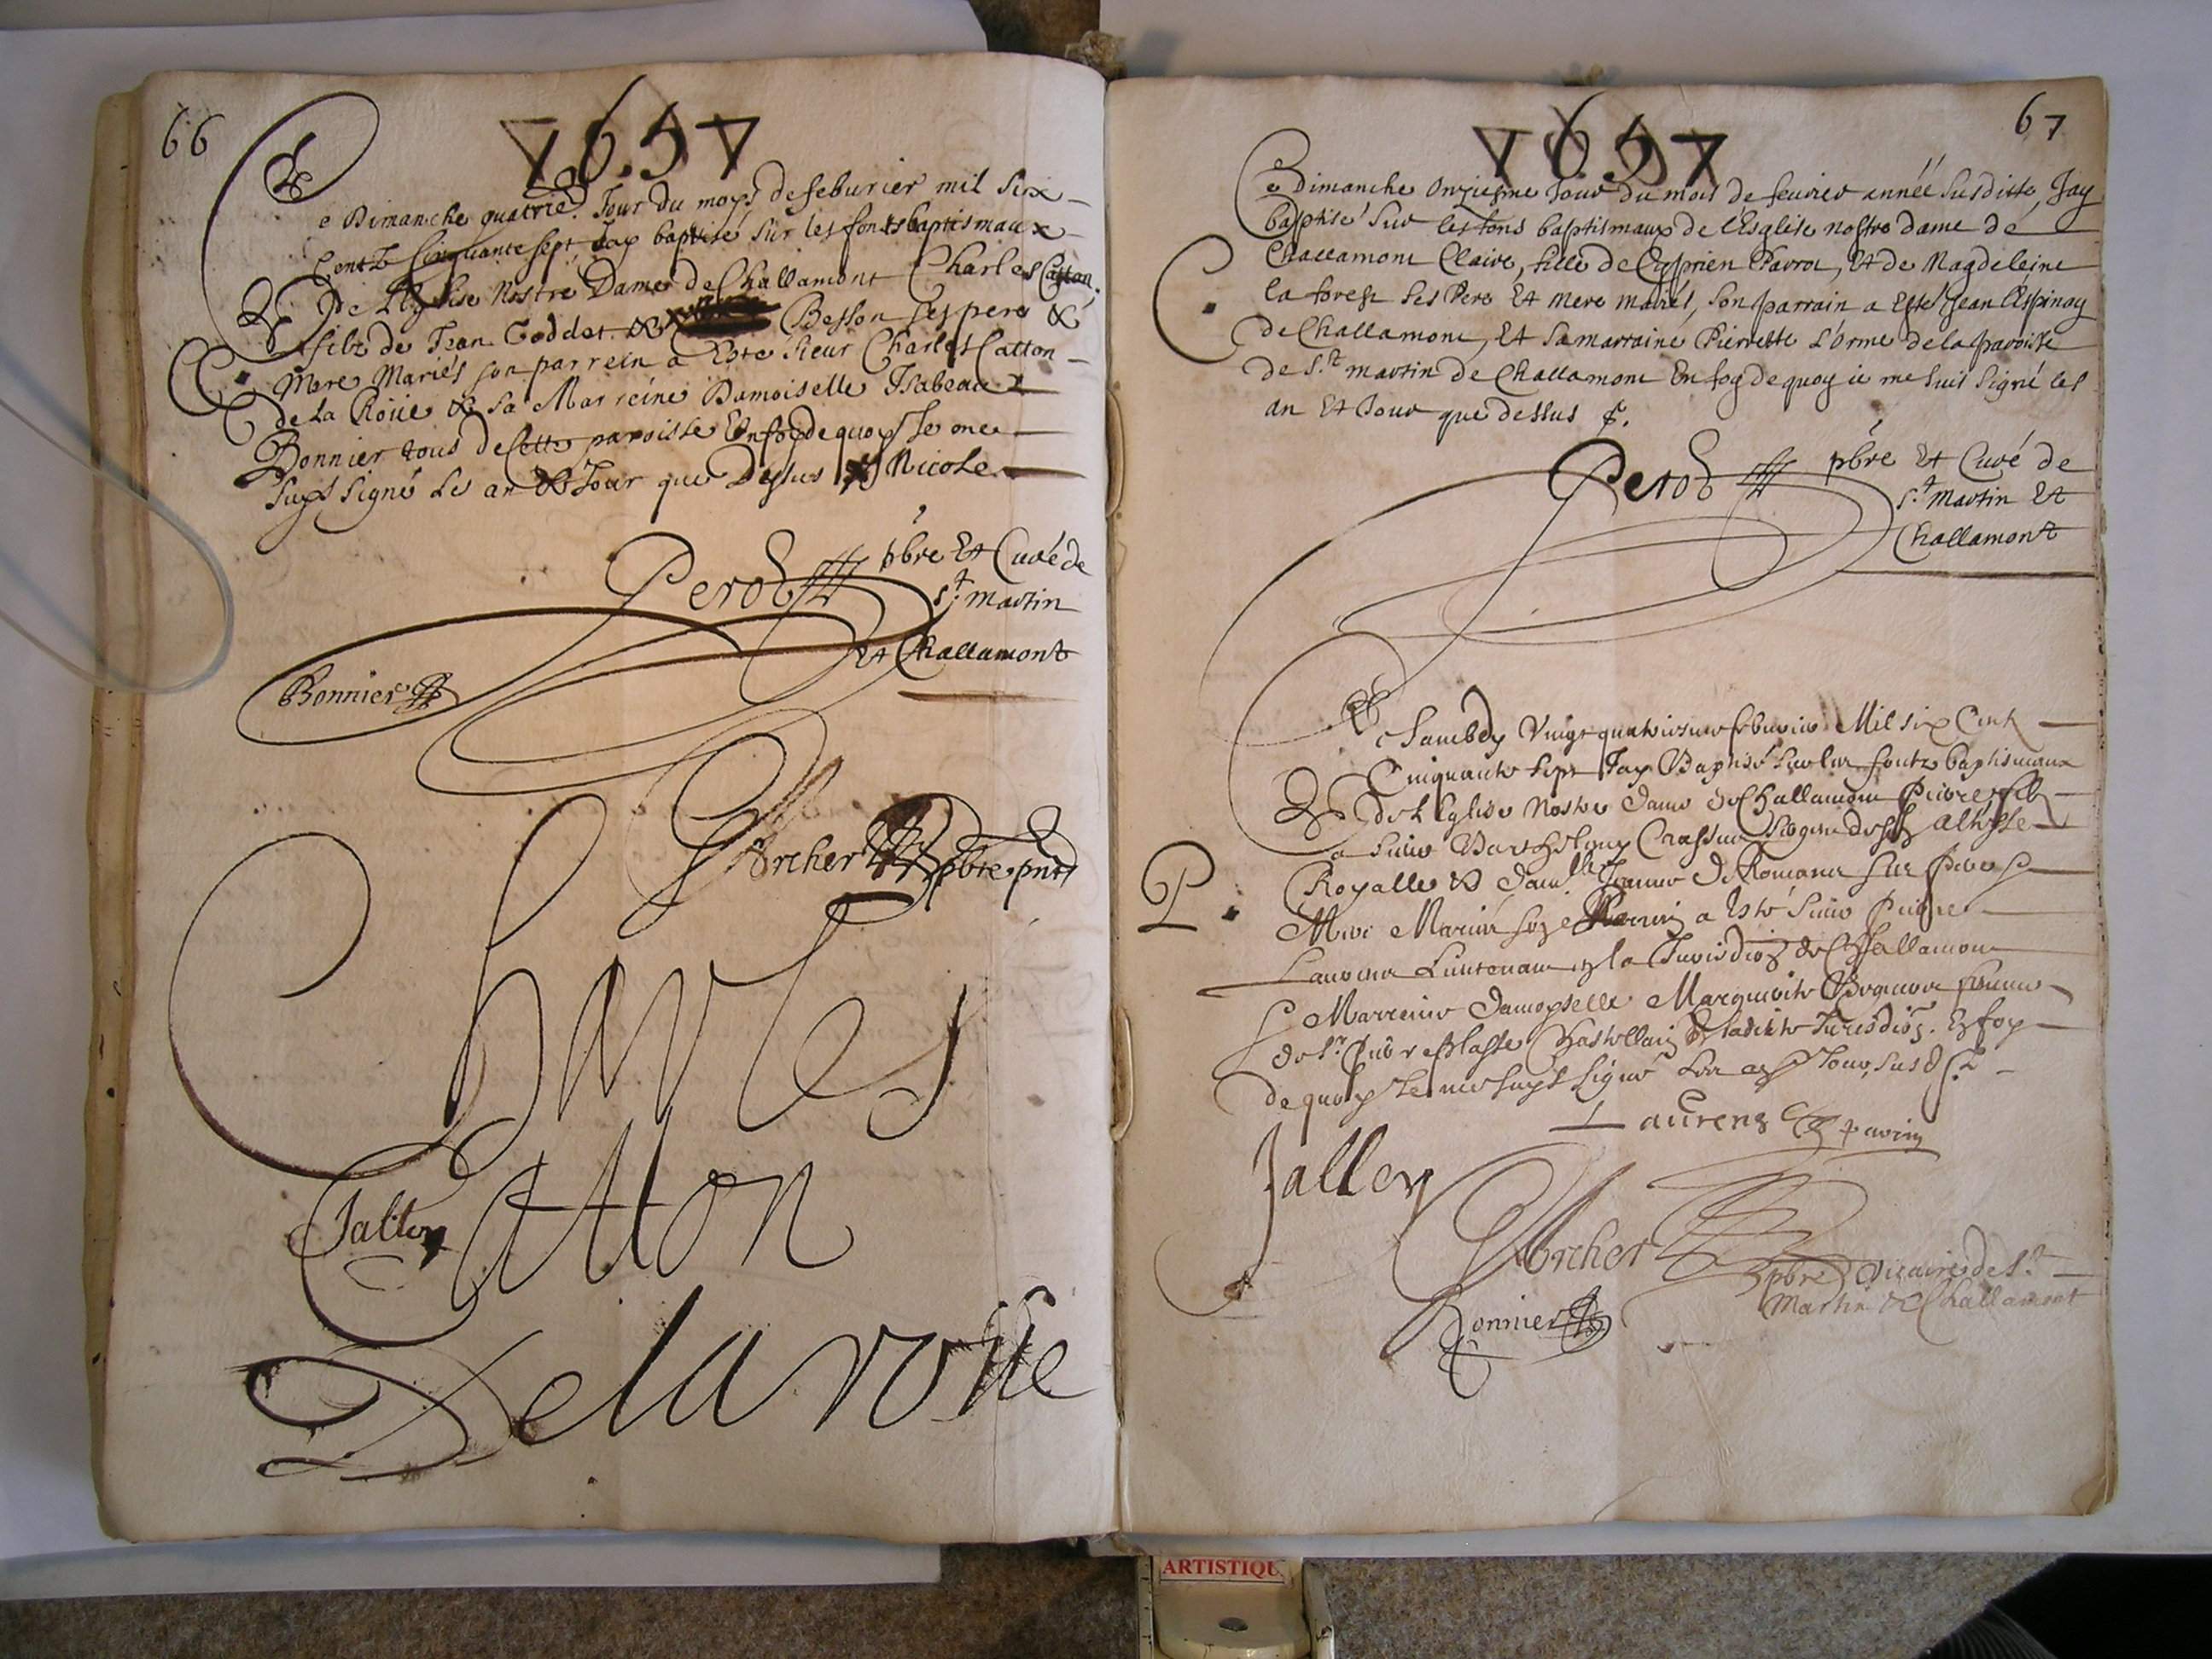 66
1657
Ce Dimanche quatrie. Jour du moys de feburier mil six
Centz Cinquante sept Jay baptisé sur les fonts baptismaux
De L'Eglise Nostre Dame de Challamont Charles Catton
filz de Jean Goddet & Besson ses pere &
C. Mere Mariés son parrein a Esté sieur Charles Catton
de la Roüe & sa Marreine Damoiselle Isabeau
Bonnier tous de Cette paroisse En foy de quoy Je me
suys signé Les an & Jour que Dessus Nicole
Perod pbre Et Curé de
St. Martin
Et Challamont
Bonnier
Archer pbre pnt
Charles
Catton
Jallon
Delaroüe
67
1657
Ce Dimanche Onziesme Jour du mois de feuvrier année susditte, Jay
baptisé sur les fons baptismaux de l'Esglise nostre dame de
C. Challamont Claire, fille de Cyprien Pavrot, Et de Magdeleine
la forest ses Pere Et mere mariés, son parrain a Esté Jean l'Espinay
de Challamont, Et sa marraine Pierrette L'orme de la paroisse
de St. martin de Challamont En foy de quoy ie me suis signé les
an Et Jour que dessus
Perod pbre Et Curé de
St. Martin Et
Challamont
Ce Sambdy Vingt quatriesme feburier Mil six Cent
Cinquante sept Jay Baptisé sur les fontz baptismaux
de L'Eglise Nostre Dame de Challamont Pierre filz
a sieur Barthelemy altesse
Royalle & Jeanne De Romans ses pere
P. Mere Mariés son Parrin a Esté sieur Pierre
Laurens Lieutenant en la Jurisdion de Challamont
Marreine Damoyselle Marguerite femme
Chastellain de ladicte Jurisdion. En foy
de quoy Je me suys signé Les an Jour susd
Laurens parrin
Jallon
Archer
pbre Vicaire de St.
Martin & Challamont
Bonnier
ARTISTIQU